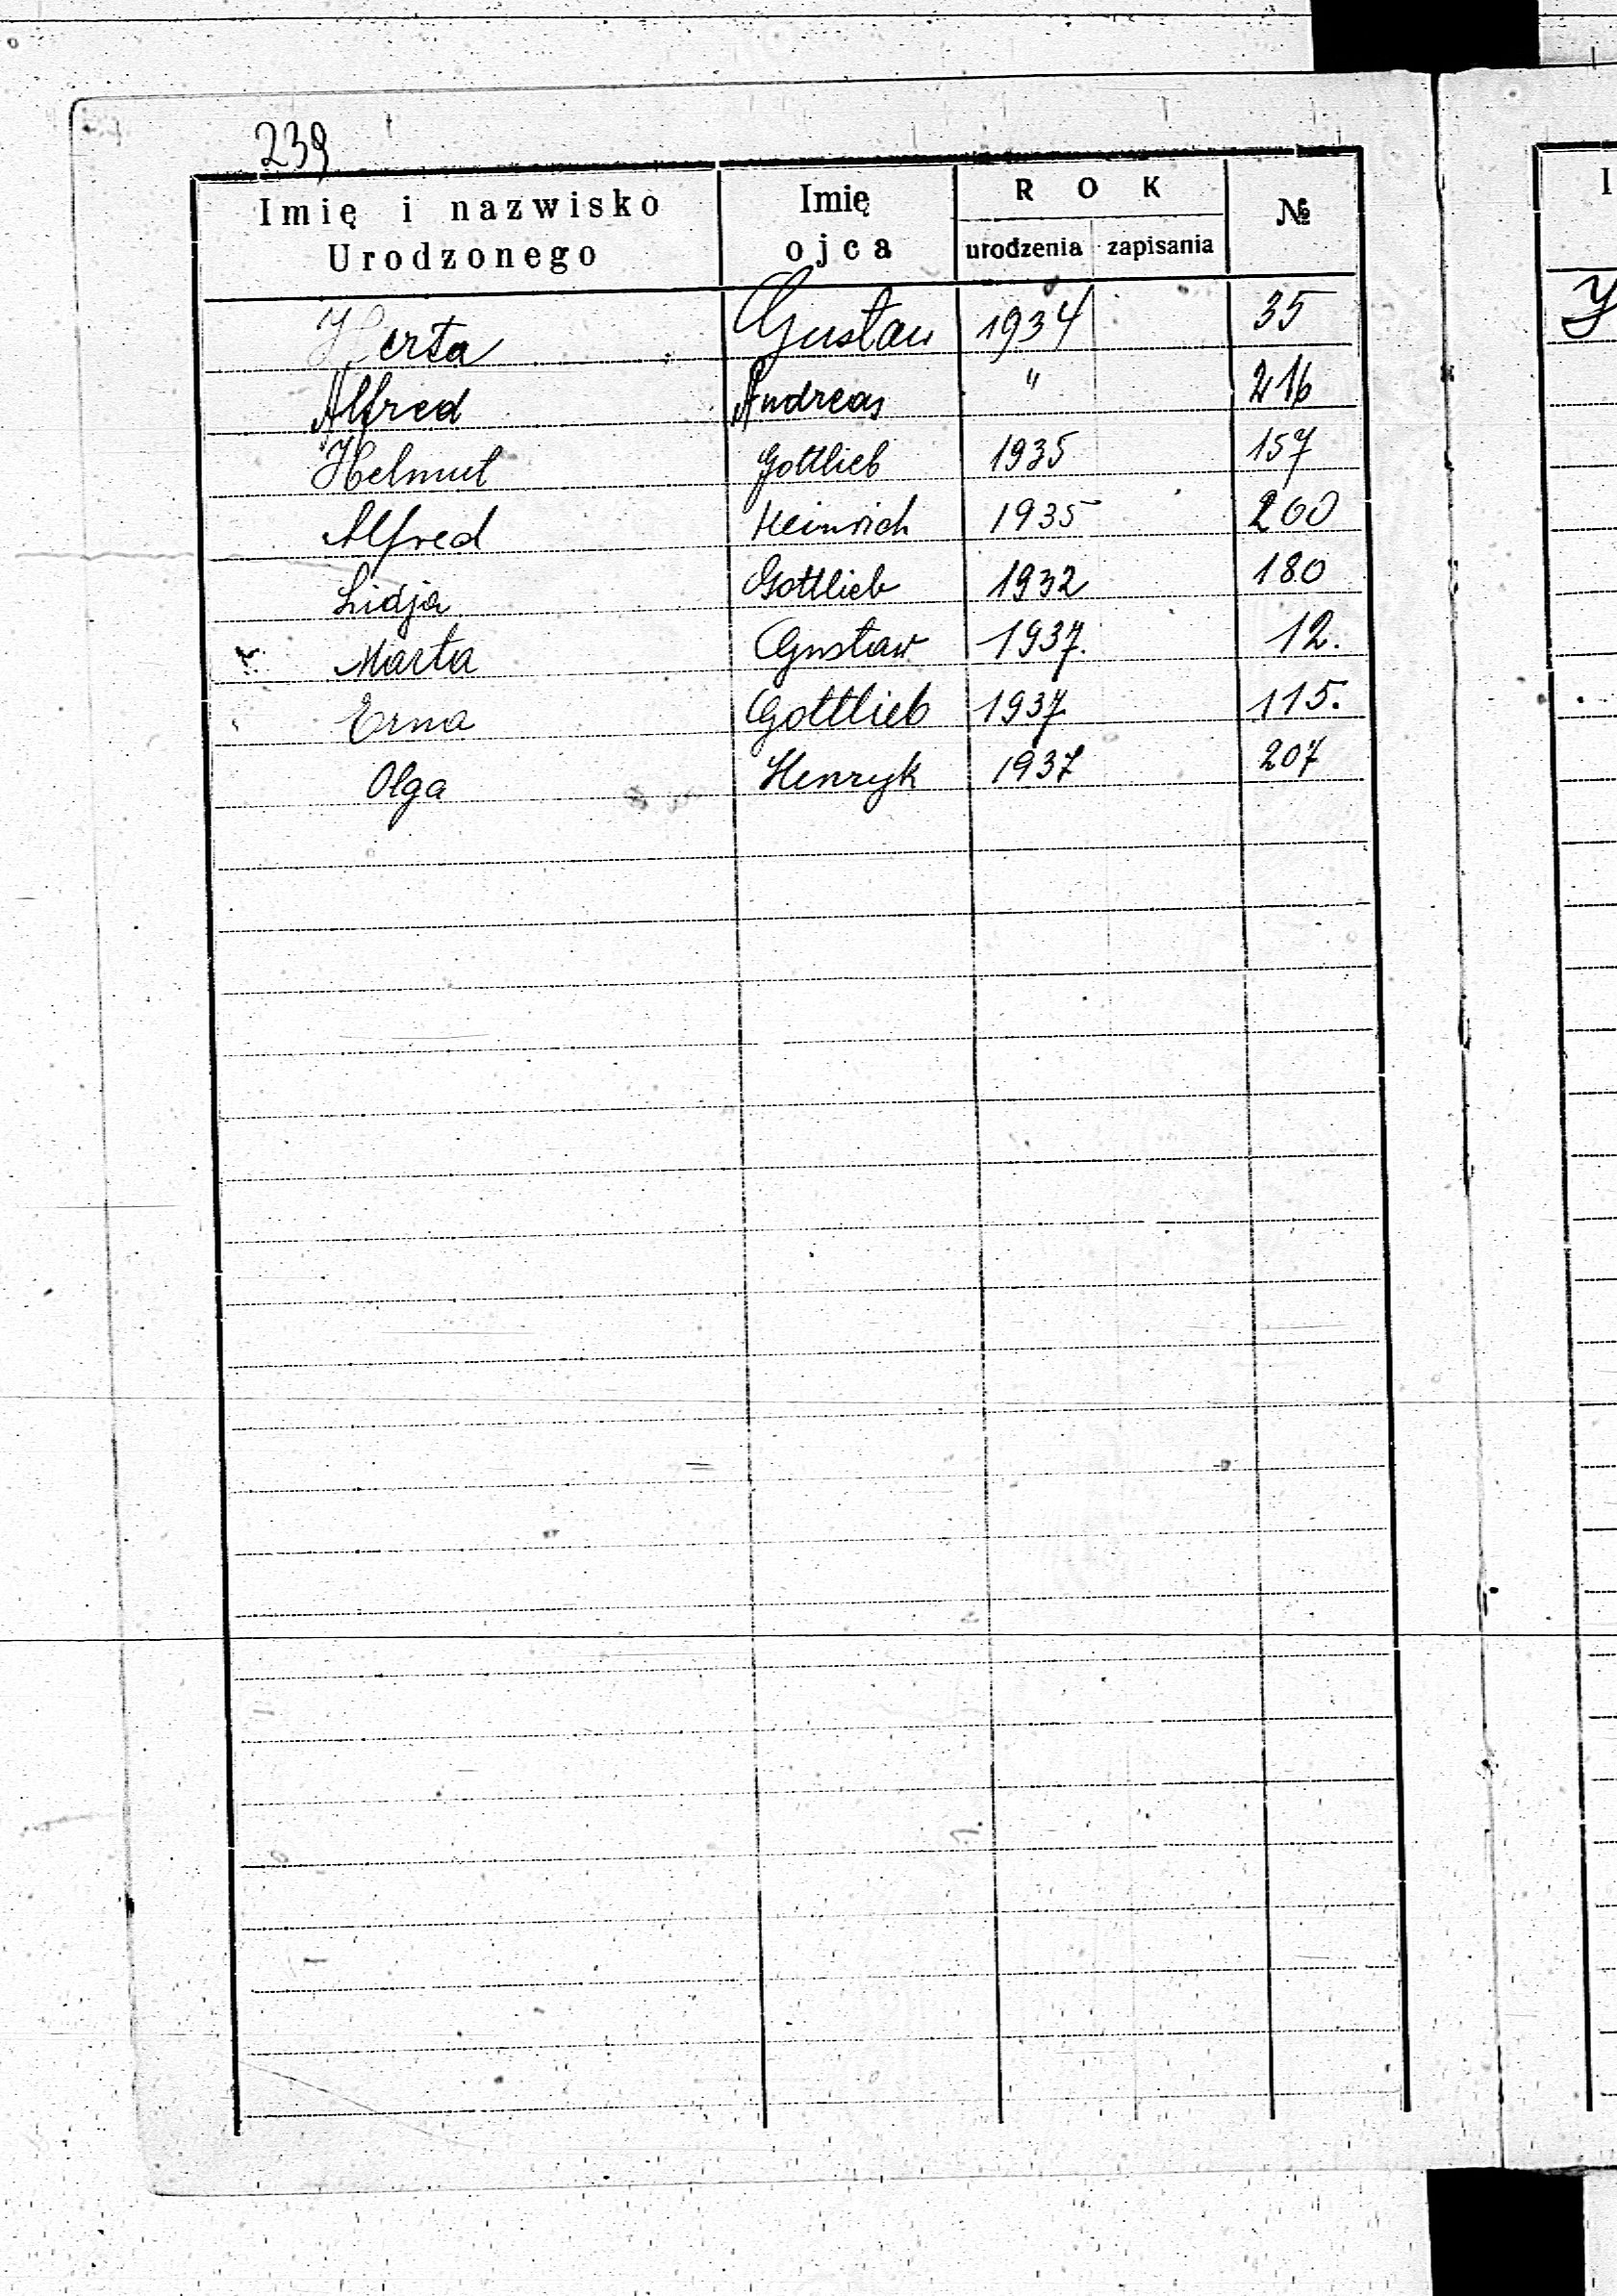 239
Imię i nazwisko Urodzonego Imię ojca ROK urodzenia zapisania №
Herta Gustav 1934 35
Alfred Andreas " 216
Helmut Gottlieb 1935 157
Alfred Heinrich 1935 200
Lidja Gottlieb 1932 180
Marta Gustaw 1937. 12.
Erna Gottlieb 1937 115.
Olga Henryk 1937 207